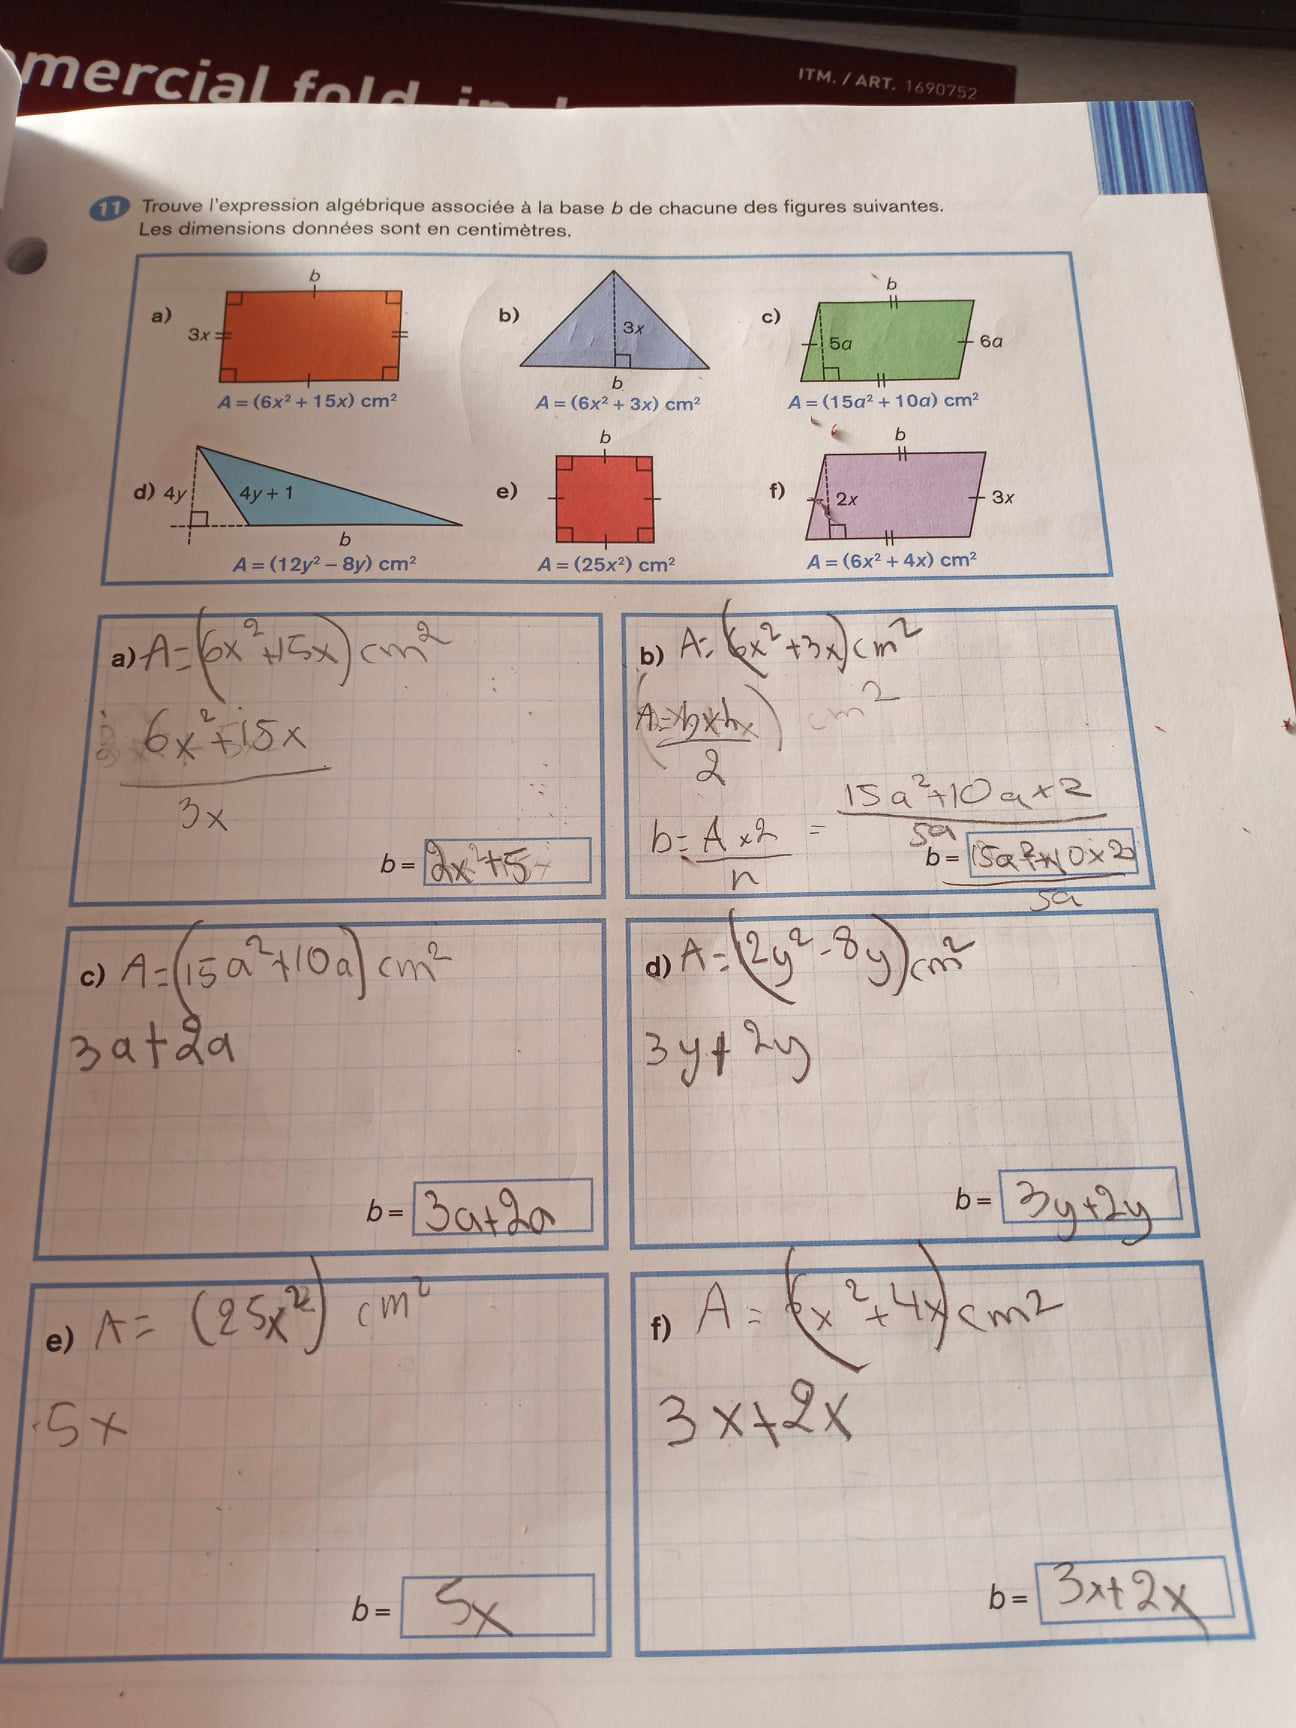 mercial fold
ITM. / ART. 1690752
11 Trouve l'expression algébrique associée à la base b de chacune des figures suivantes.
Les dimensions données sont en centimètres.
a)
b
3x
A = (6x² + 15x) cm²
b)
3x
b
A = (6x² + 3x) cm²
c)
b
5a
6a
A = (15a² + 10a) cm²
d) 4y
4y + 1
b
A = (12y² – 8y) cm²
e)
b
A = (25x²) cm²
f)
b
2x
3x
A = (6x² + 4x) cm²
a) A = (6x² + 15x) cm²
6x² + 15x
3x
b = 2x² + 5
b) A = (6x² + 3x) cm²
cm²
2
b = A x 2 = 15a² + 10a x 2
h
5a
b =
5a
c) A = (15a² + 10a) cm²
3a + 2a
b = 3a + 2a
d) A = (12y² - 8y) cm²
3y + 2y
b = 3y + 2y
e) A = (25x²) cm²
5x
b = 5x
f) A = (6x² + 4x) cm²
3x + 2x
b = 3x + 2x